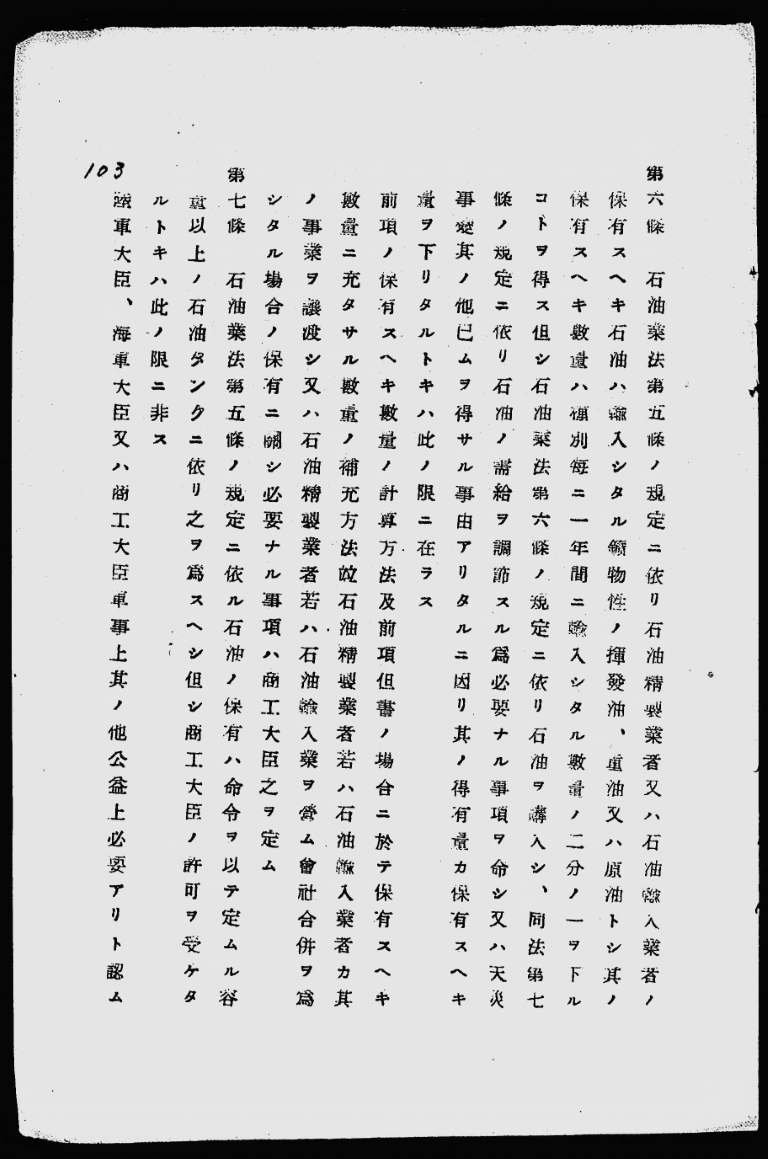 第六條 石油業法第五條ノ規定ニ依リ石油精製業者又ハ石油輸入業者ノ
保有スヘキ石油ハ輸入シタル鑛物性ノ揮發油、重油又ハ原油トシ其ノ
保有スヘキ數量ハ種別每ニ一年間ニ輸入シタル數量ノ二分ノ一ヲ下ル
コトヲ得ス但シ石油業法第六條ノ規定ニ依リ石油ヲ購入シ、同法第七
條ノ規定ニ依リ石油ノ需給ヲ調節スル爲必要ナル事項ヲ命シ又ハ天災
事變其ノ他已ムヲ得サル事由アリタルニ因リ其ノ得有量カ保有スヘキ
量ヲ下リタルトキハ此ノ限ニ在ラス
前項ノ保有スヘキ數量ノ計算方法及前項但書ノ場合ニ於テ保有スヘキ
數量ニ充タサル數量ノ補充方法竝石油精製業者若ハ石油輸入業者カ其
ノ事業ヲ讓渡シ又ハ石油精製業者若ハ石油輸入業ヲ營ム會社合併ヲ爲
シタル場合ノ保有ニ關シ必要ナル事項ハ商工大臣之ヲ定ム
第七條 石油業法第五條ノ規定ニ依ル石油ノ保有ハ命令ヲ以テ定ムル容
量以上ノ石油タンクニ依リ之ヲ爲スヘシ但シ商工大臣ノ許可ヲ受ケタ
ルトキハ此ノ限ニ非ス
陸軍大臣、海軍大臣又ハ商工大臣軍事上其ノ他公益上必要アリト認ム
103